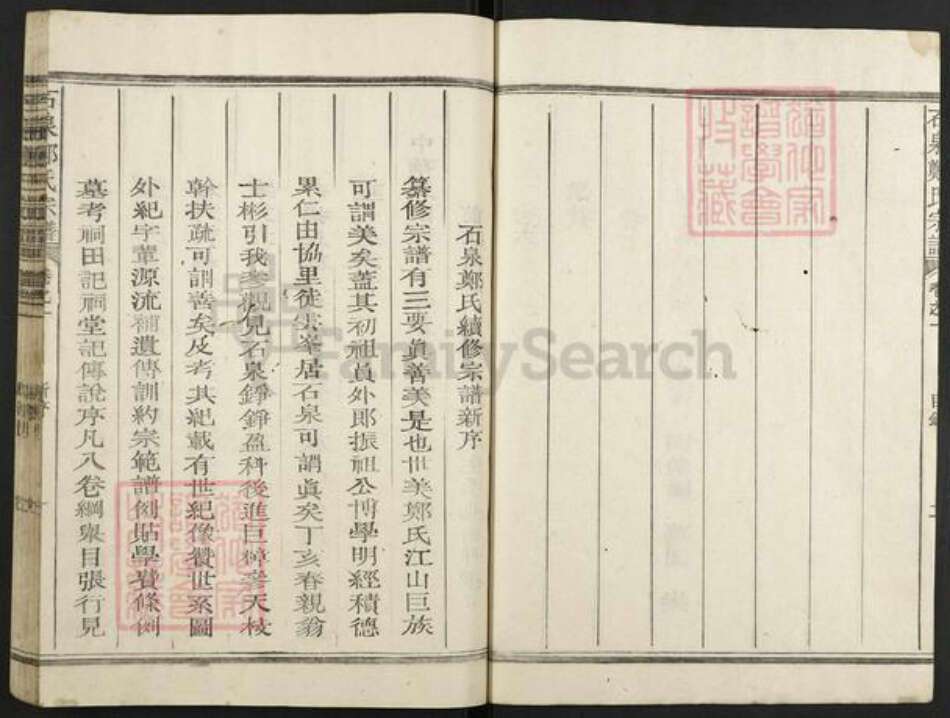 石泉鄭氏宗譜
目錄
石泉鄭氏續修宗譜新序
纂修宗譜有三要眞善美是也世美鄭氏江山巨族
可謂美矣蓋其初祖員外郎振祖公博學明經積德
累仁由協里徒尖峯居石泉可謂眞矣丁亥春親翁
士彬引我參觀見石泉錚錚盈科後進巨樟參天枝
幹扶疏可謂善矣及考其紀載有世紀像贊世系圖
外紀字輩源流補遺傳訓約宗範譜例貼學資條例
墓考祠田記祠堂記傳說序凡八卷綱舉目張行見
石泉鄭氏宗譜
新序
FamilySearch